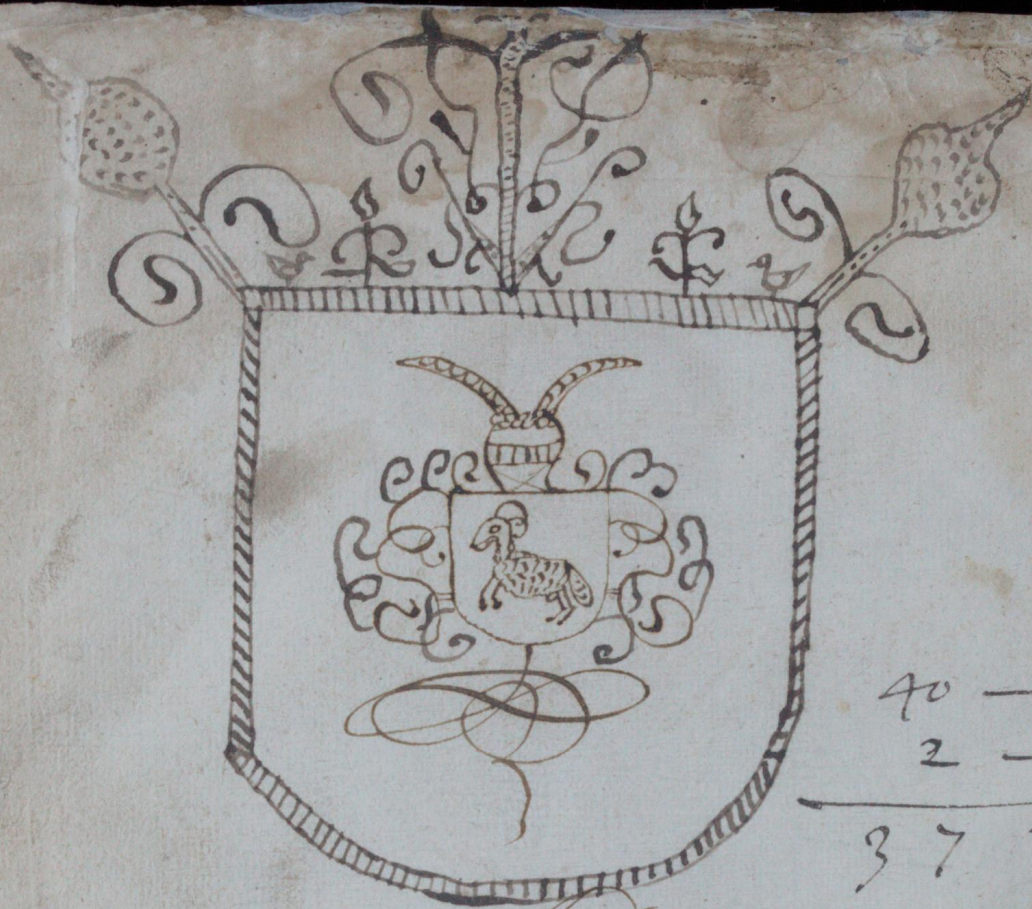 40 —
2 -
37